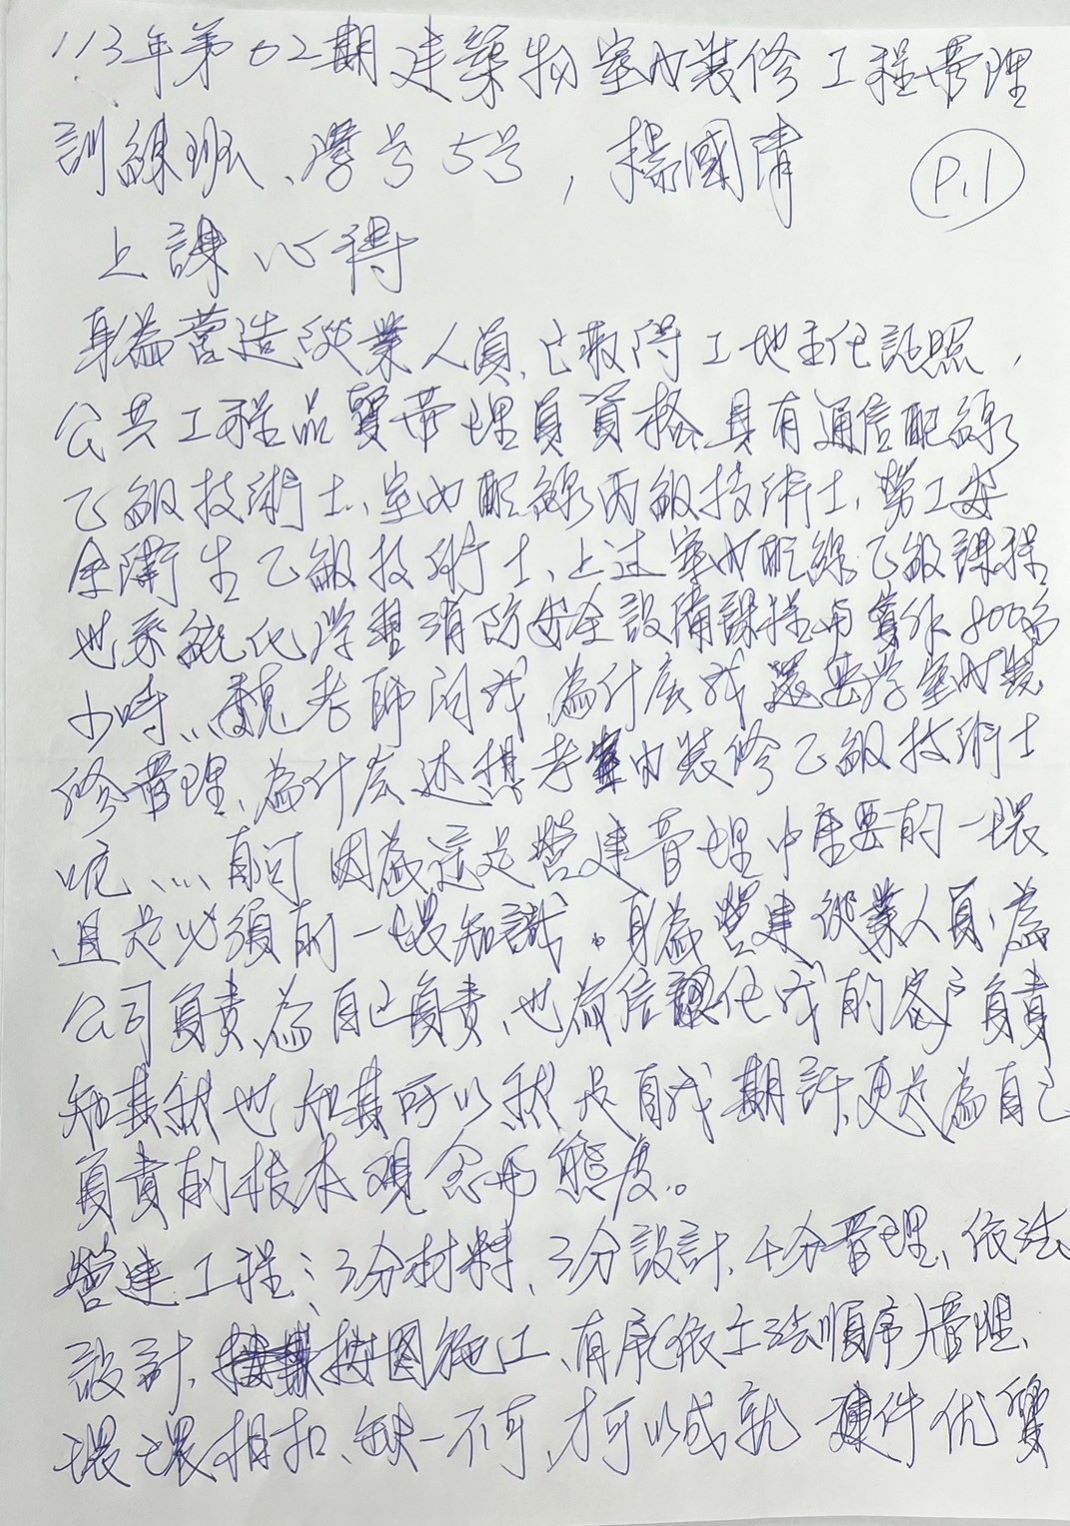 113年第02期建築物室內裝修工程管理
訓練班、學号5号,楊國清
P.1
上課心得
身為營造從業人員、已取得工地主任証照,
公共工程品質管理員資格、具有通信配線
乙級技術士、室內配線丙級技術士、勞工安
全衛生乙級技術士、上过室內配線乙級課程
也系統化学習消防安全設備課程与實作800多
小時、...魏老師問我、為什麼我還要学室內裝
修管理、為什麼还想考室內裝修乙級技術士
呢、... 因為這是營建管理中重要的一環、
且是必須的一環知識。身為營建從業人員、為
公司負責、為自己負責、也為信認任我的客戶負責
知其然也知其所以然是自我期許、更是為自己
負責的根本观念与態度。
營建工程:3分材料、3分設計、4分管理、依法
設計、按图施工、有序(依工法順序)管理、
環環相扣、缺一不可、才可以成就 建件优質